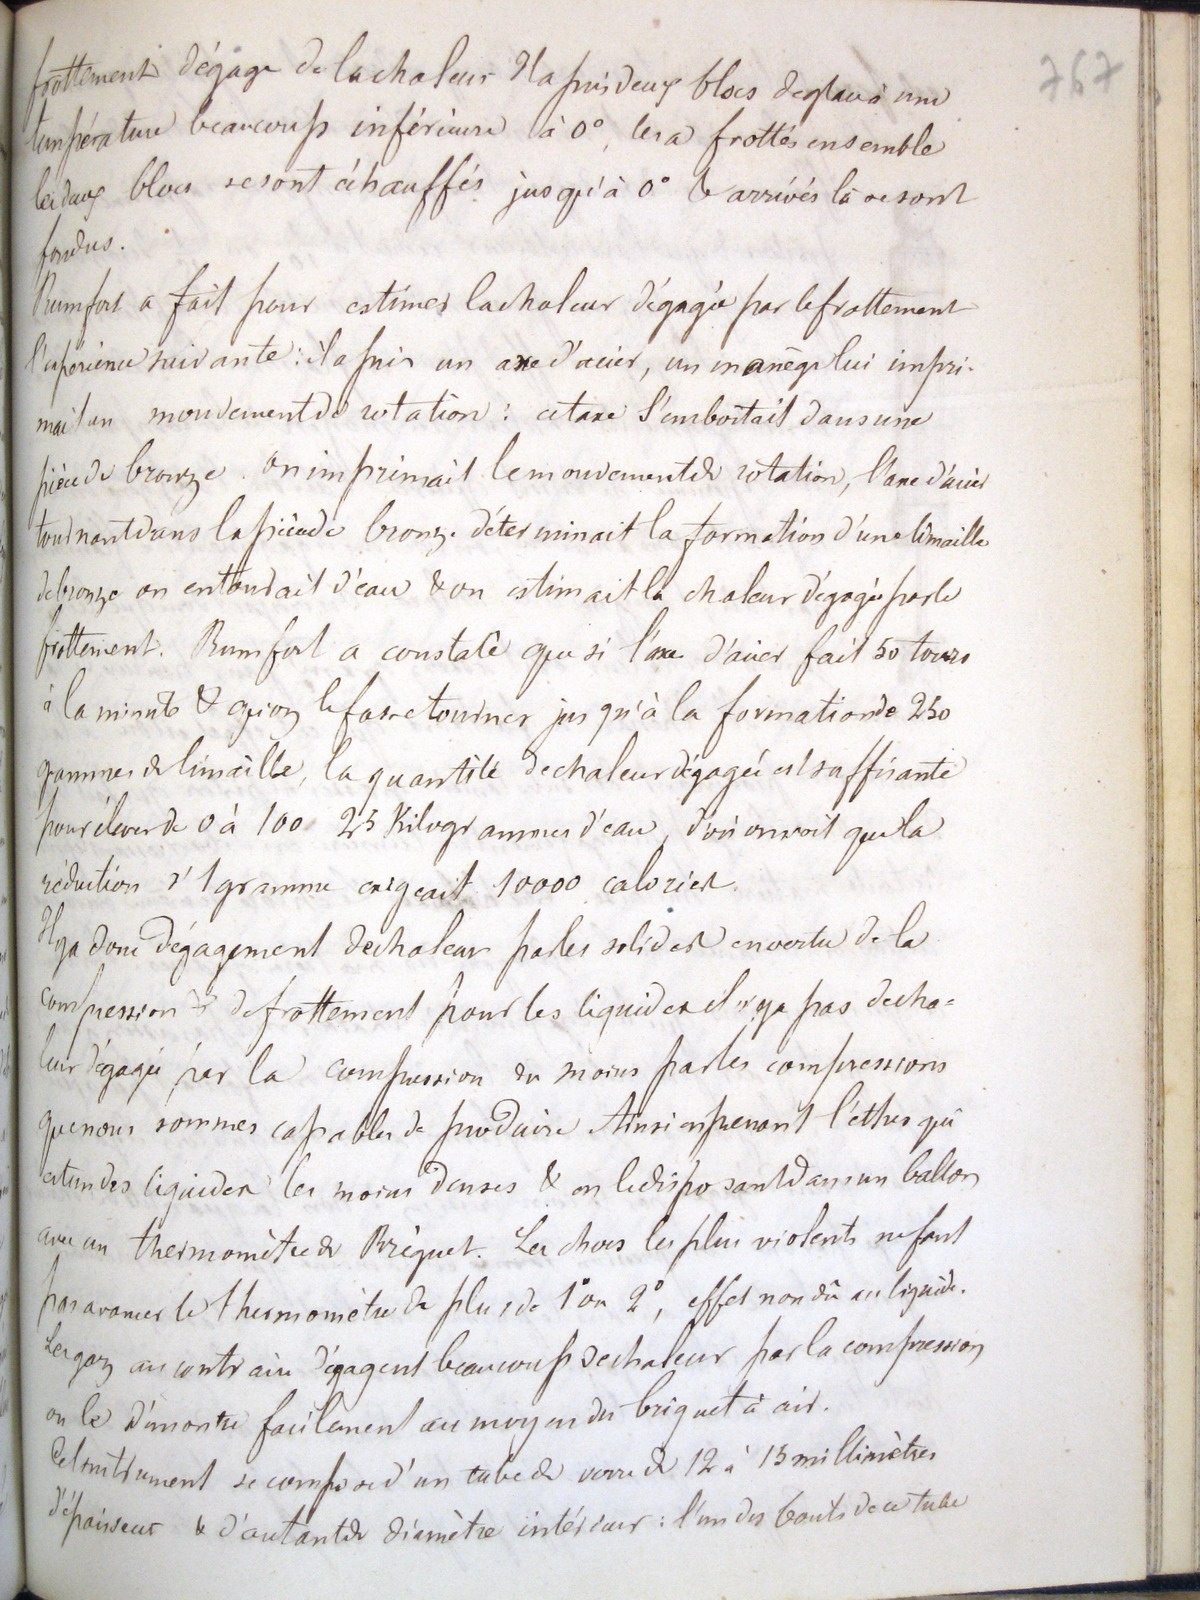 767
frottement dégage de la chaleur Il a pris deux blocs de glace à une
température beaucoup inférieure à 0°, les a frottés ensemble
les deux blocs se sont échauffés jusqu'à 0° & arrivés là se sont
fondus.
Rumfort a fait pour estimer la chaleur dégagée par le frottement
l'expérience suivante : il a pris un axe d'acier, un manège lui impri-
mait un mouvement de rotation : cet axe s'emboitait dans une
pièce de bronze. on imprimait le mouvement de rotation, l'axe d'acier
tournant dans la pièce de bronze déterminait la formation d'une limaille
de bronze on entourait d'eau & on estimait la chaleur dégagée par le
frottement. Rumfort a constaté que si l'axe d'acier fait 50 tours
à la minute & qu'on le fasse tourner jusqu'à la formation de 250
grammes de limaille, la quantité de chaleur dégagée est suffisante
pour élever de 0 à 100 25 Kilogrammes d'eau, d'où on voit que la
réduction d'1 gramme exigeait 10000 calories.
Il y a donc dégagement de chaleur par les solides en vertu de la
compression & de frottement pour les liquides il n'y a pas de cha-
leur dégagée par la compression du moins par les compressions
que nous sommes capables de produire Ainsi en prenant l'éther qui
est un des liquides les moins denses & en le disposant dans un ballon
avec un thermomètre de Bréguet. Les chocs les plus violents ne font
pas avancer le thermomètre de plus de 1° ou 2°, effet non dû au liquide.
Les gaz au contraire dégagent beaucoup de chaleur par la compression
on le démontre facilement au moyen du briquet à air.
Cet instrument se compose d'un tube de verre de 12 à 15 millimètres
d'épaisseur & d'autant de diamètre intérieur : l'un des bouts de ce tube